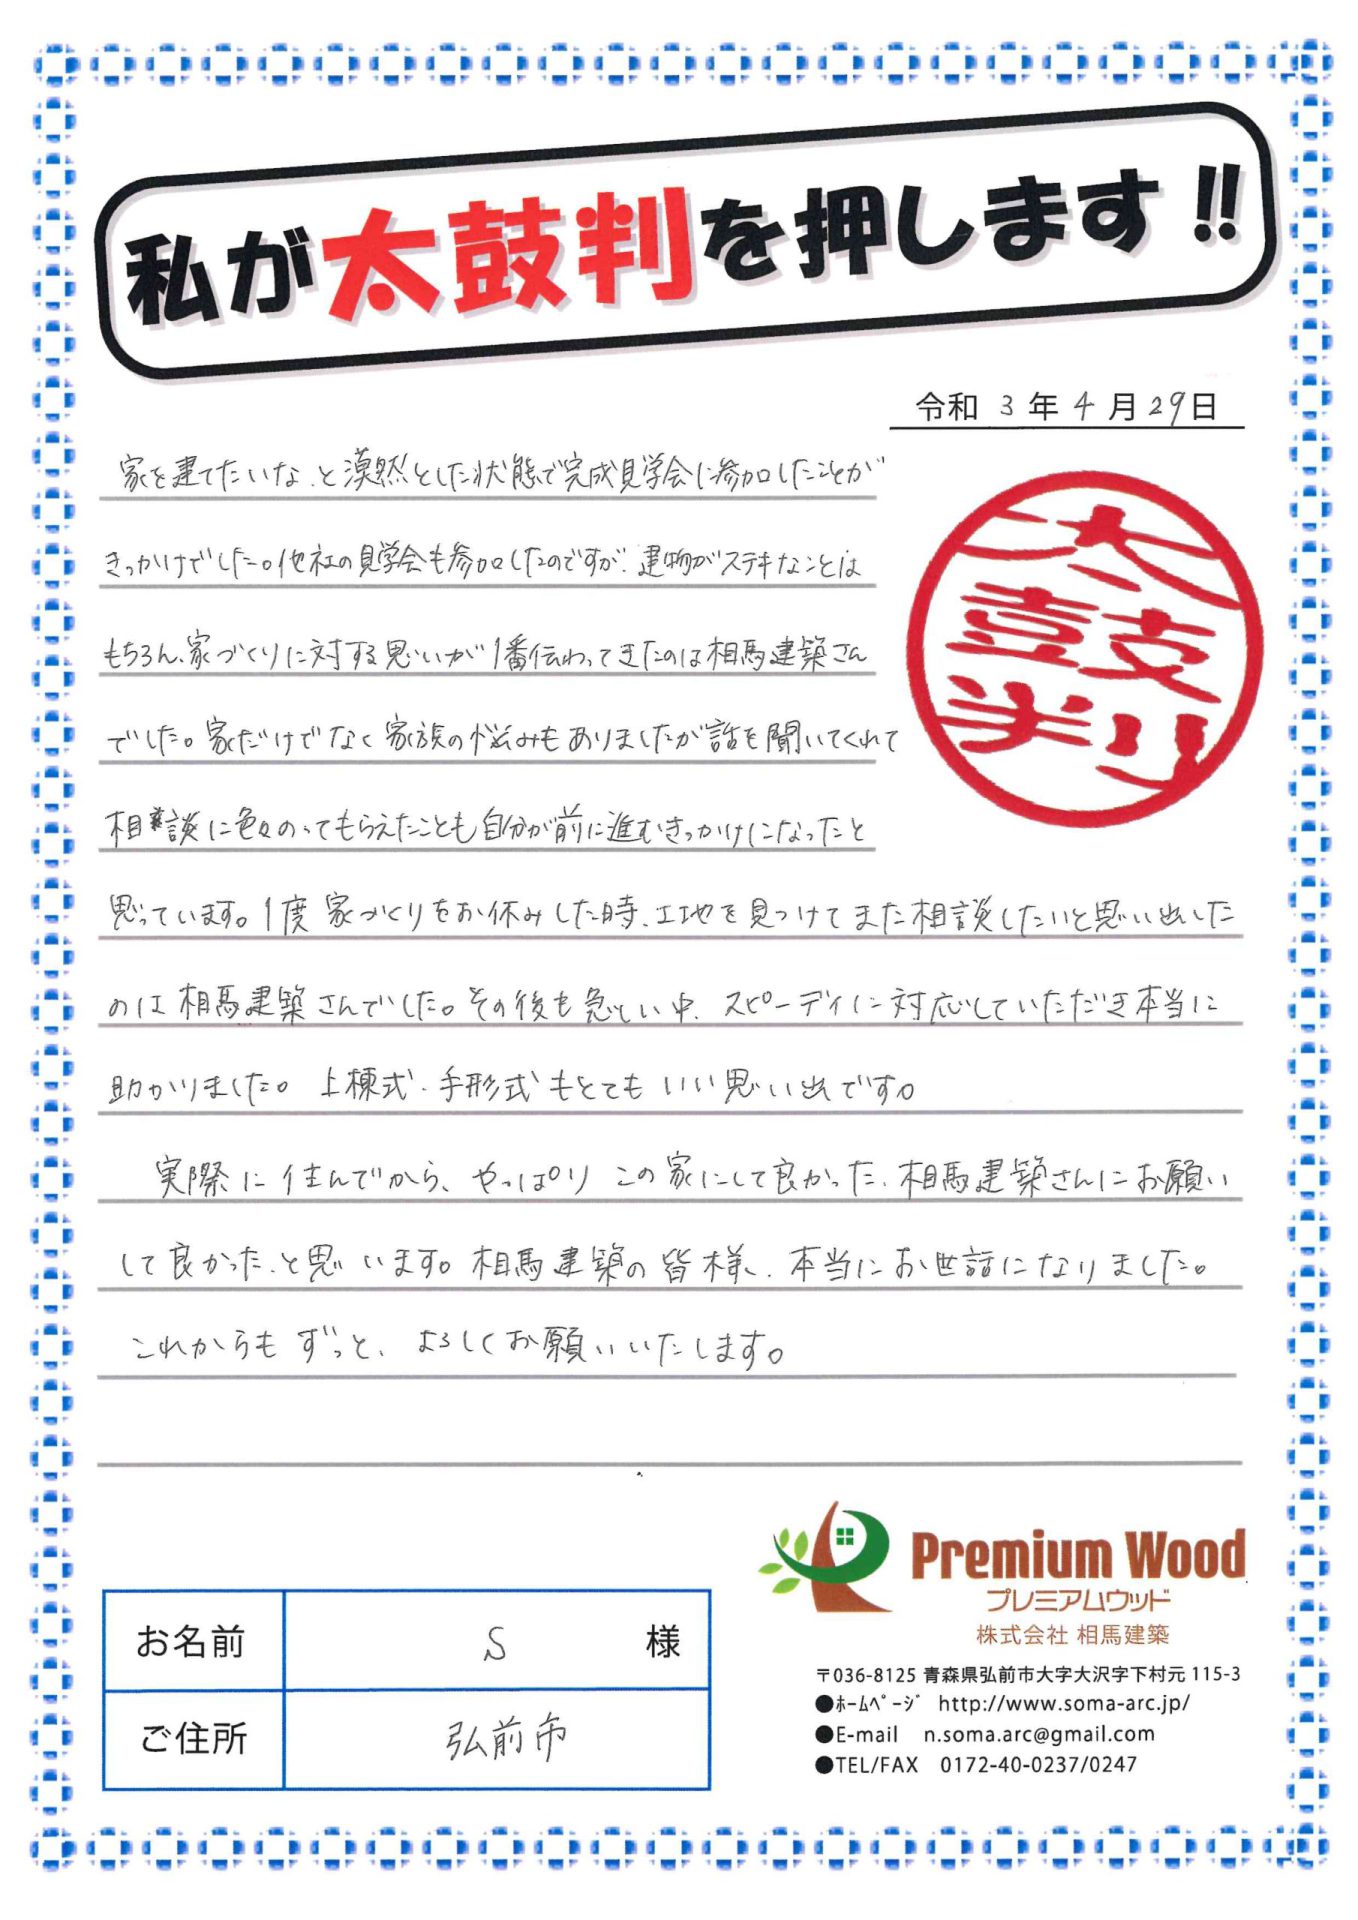 私が太鼓判を押します!!
令和 3 年 4 月 29 日
家を建てたいな、と漠然とした状態で完成見学会に参加したことが
きっかけでした。他社の見学会も参加したのですが、建物がステキなことは
もちろん、家づくりに対する思いが1番伝わってきたのは相馬建築さん
でした。家だけでなく家族の悩みもありましたが話を聞いてくれて
相談に色々のってもらえたことも自分が前に進むきっかけになったと
思っています。1度家づくりをお休みした時、土地を見つけてまた相談したいと思い出した
のは相馬建築さんでした。その後も急とい中、スピーディに対応していただき本当に
助かりました。上棟式・手形式もとてもいい思い出です。
実際に住んでから、やっぱりこの家にして良かった、相馬建築さんにお願い
して良かった、と思います。相馬建築の皆様、本当にお世話になりました。
これからもずっと、よろしくお願いいたします。
太鼓判
Premium Wood
プレミアムウッド
株式会社 相馬建築
〒036-8125 青森県弘前市大字大沢字下村元 115-3
●ﾎｰﾑﾍﾟｰｼﾞ http://www.soma-arc.jp/
●E-mail n.soma.arc@gmail.com
●TEL/FAX 0172-40-0237/0247
お名前 S 様
ご住所 弘前市